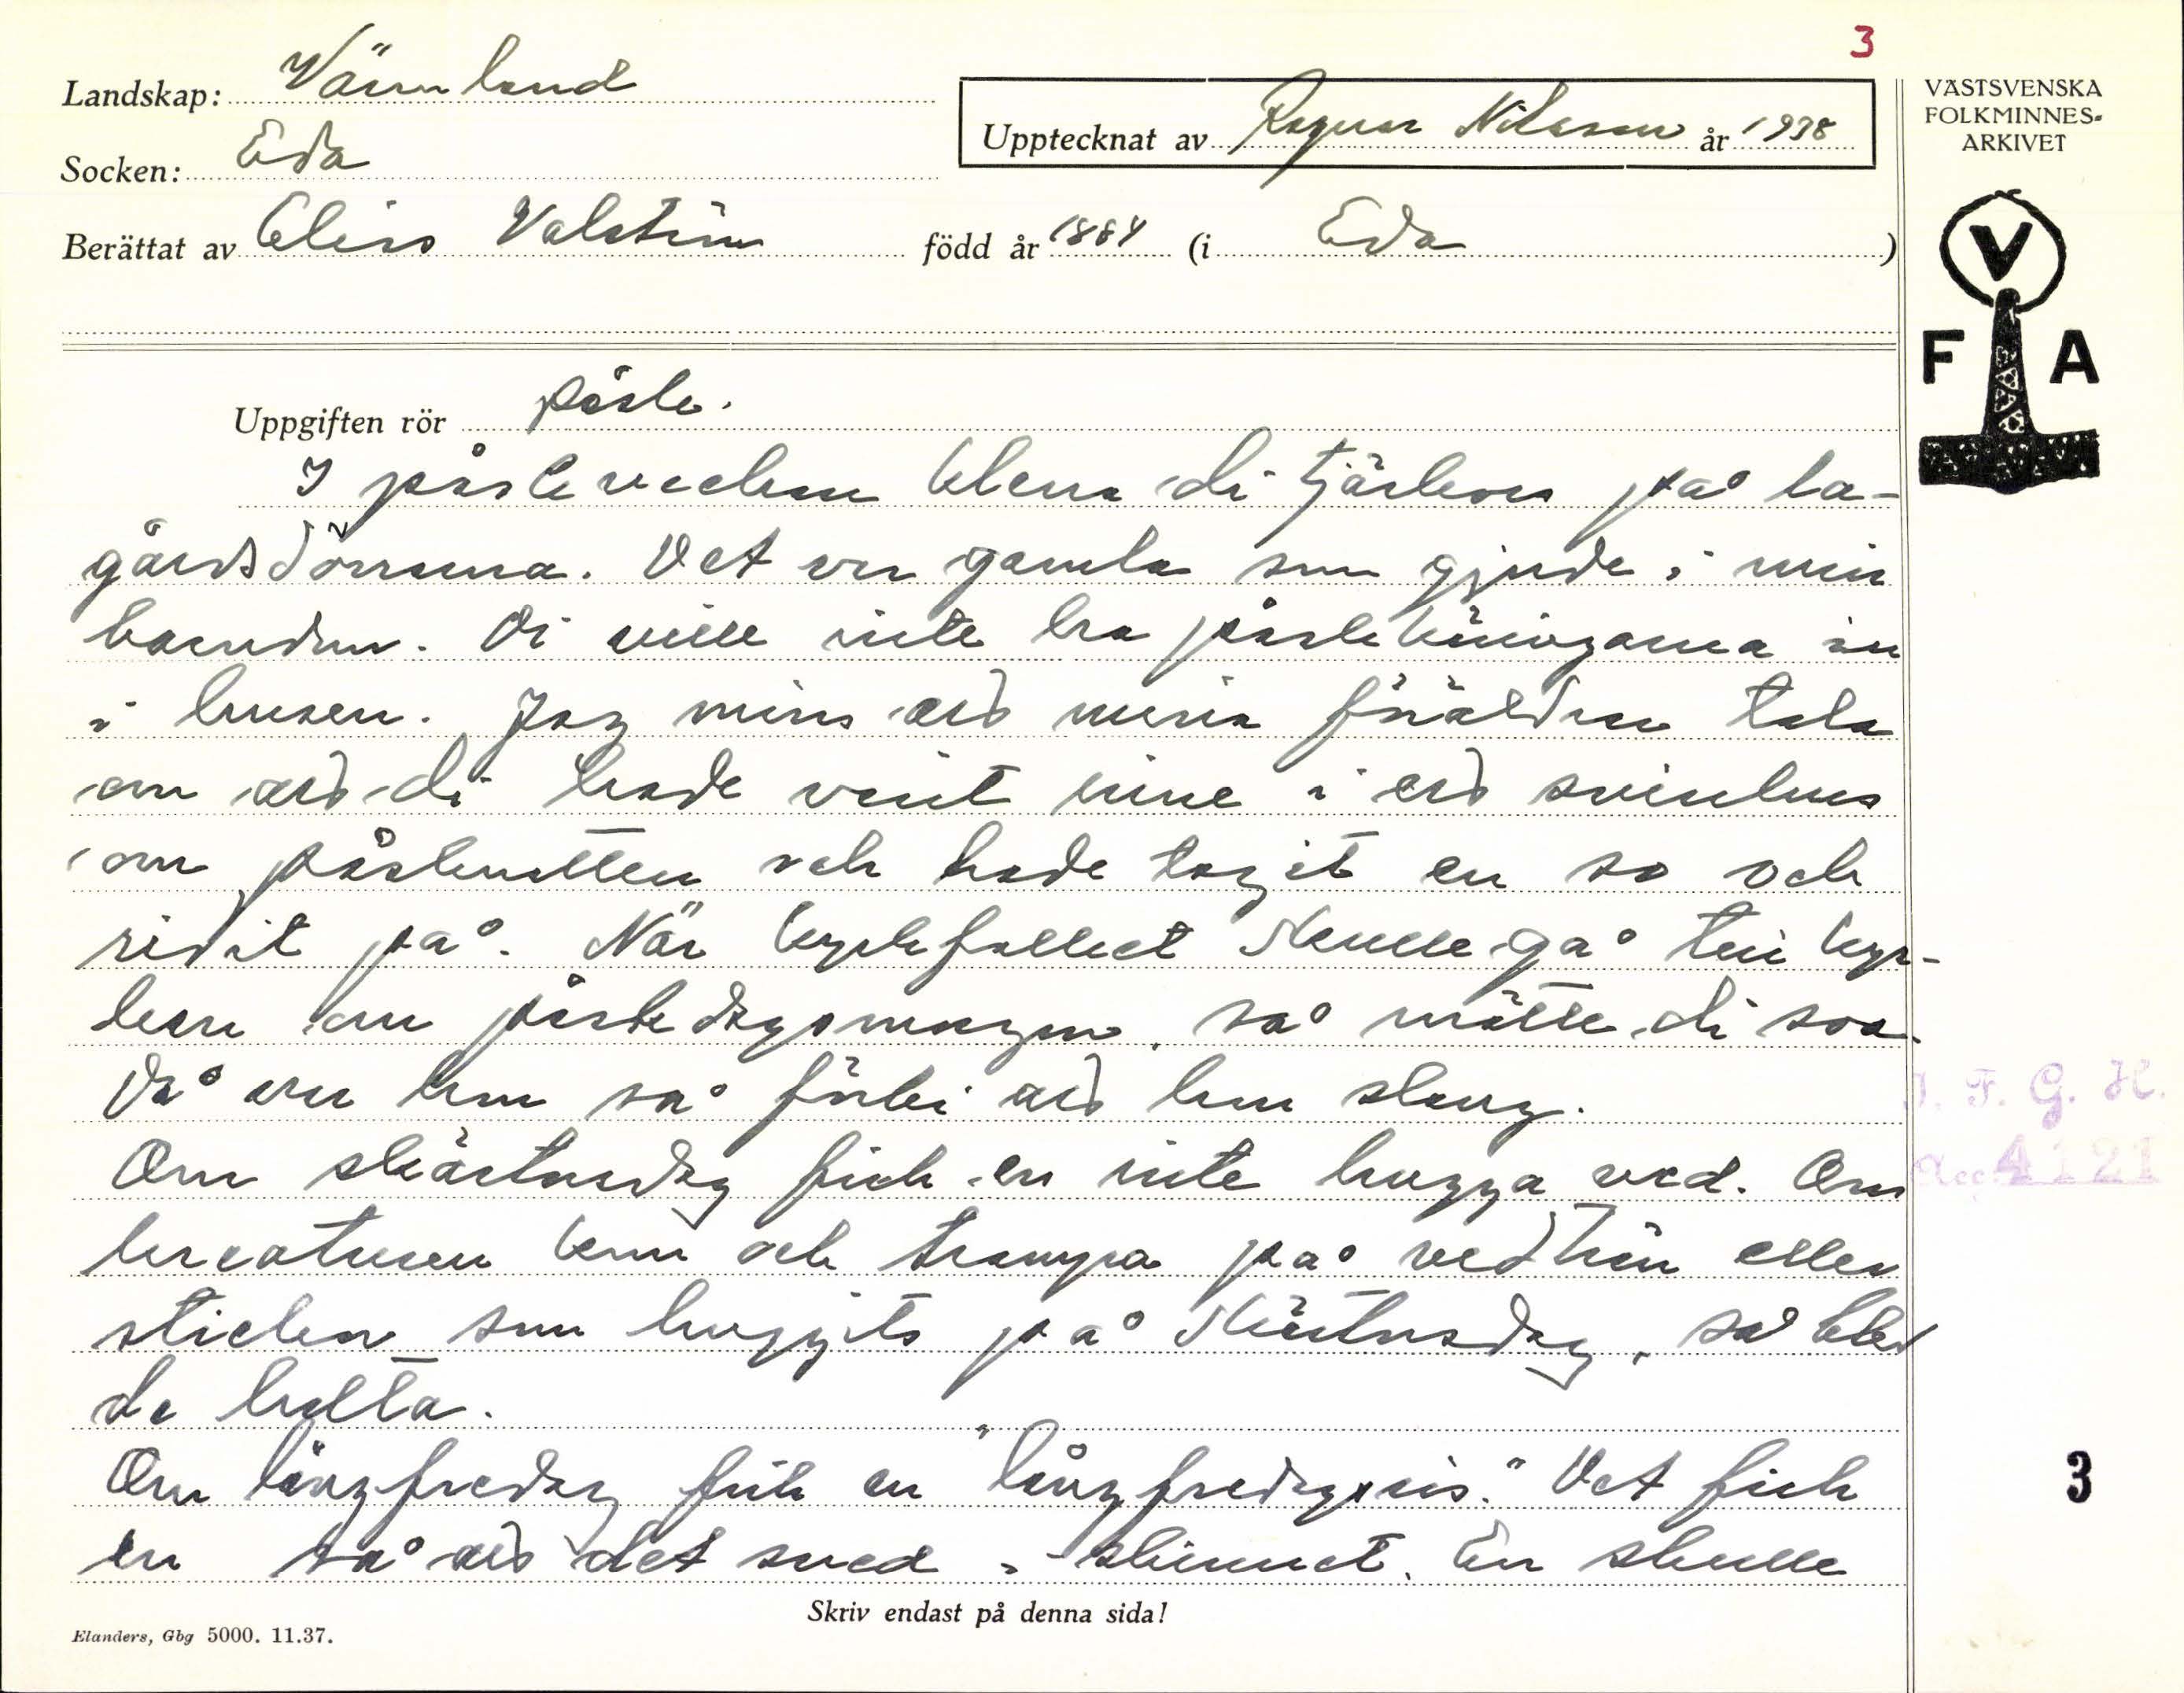 3
Landskap: Värmland
Upptecknat av Ragnar Nilsson år 1938
VÄSTSVENSKA
FOLKMINNES-
ARKIVET
Socken: Eda
Berättat av Elis Valström född år 1884 (i Eda )
V
F A
Uppgiften rör påsk.
I påskveckan klena di tjärkors på la-
gårdsdörrarna. Det var gamla som gjorde i min
barndom. Di ville inte ha påskkäringarna in
i husen. Jag mins att mina föräldrar tala
om att di hade varit inne i ett svinhus
om påsknatten och hade tagit en so och
ridit på. När kyrkfolket skulle gå till kyr-
kan om påskdagsmorgon, så mötte di soa.
Då var hon så förbi att hon slang.
Om skärtorsdag fick en inte hugga ved. Om
kreaturen kom och trampa på vedträn eller
stickor som huggits på skärtorsdag, så blev
de halta.
Om långfredag fick en "långfredagsris." Det fick
en så att det sved i skinnet. En skulle
I. F. G. H.
Acc. 4121
3
Skriv endast på denna sida!
Elanders, Gbg 5000. 11.37.